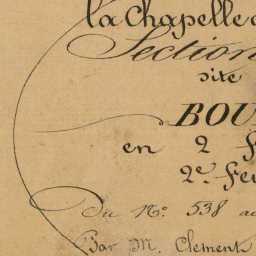 la Chapelle
Section
dite
BOU
en 2 F
2e Feu
Du No. 538 au
Par M. Clement